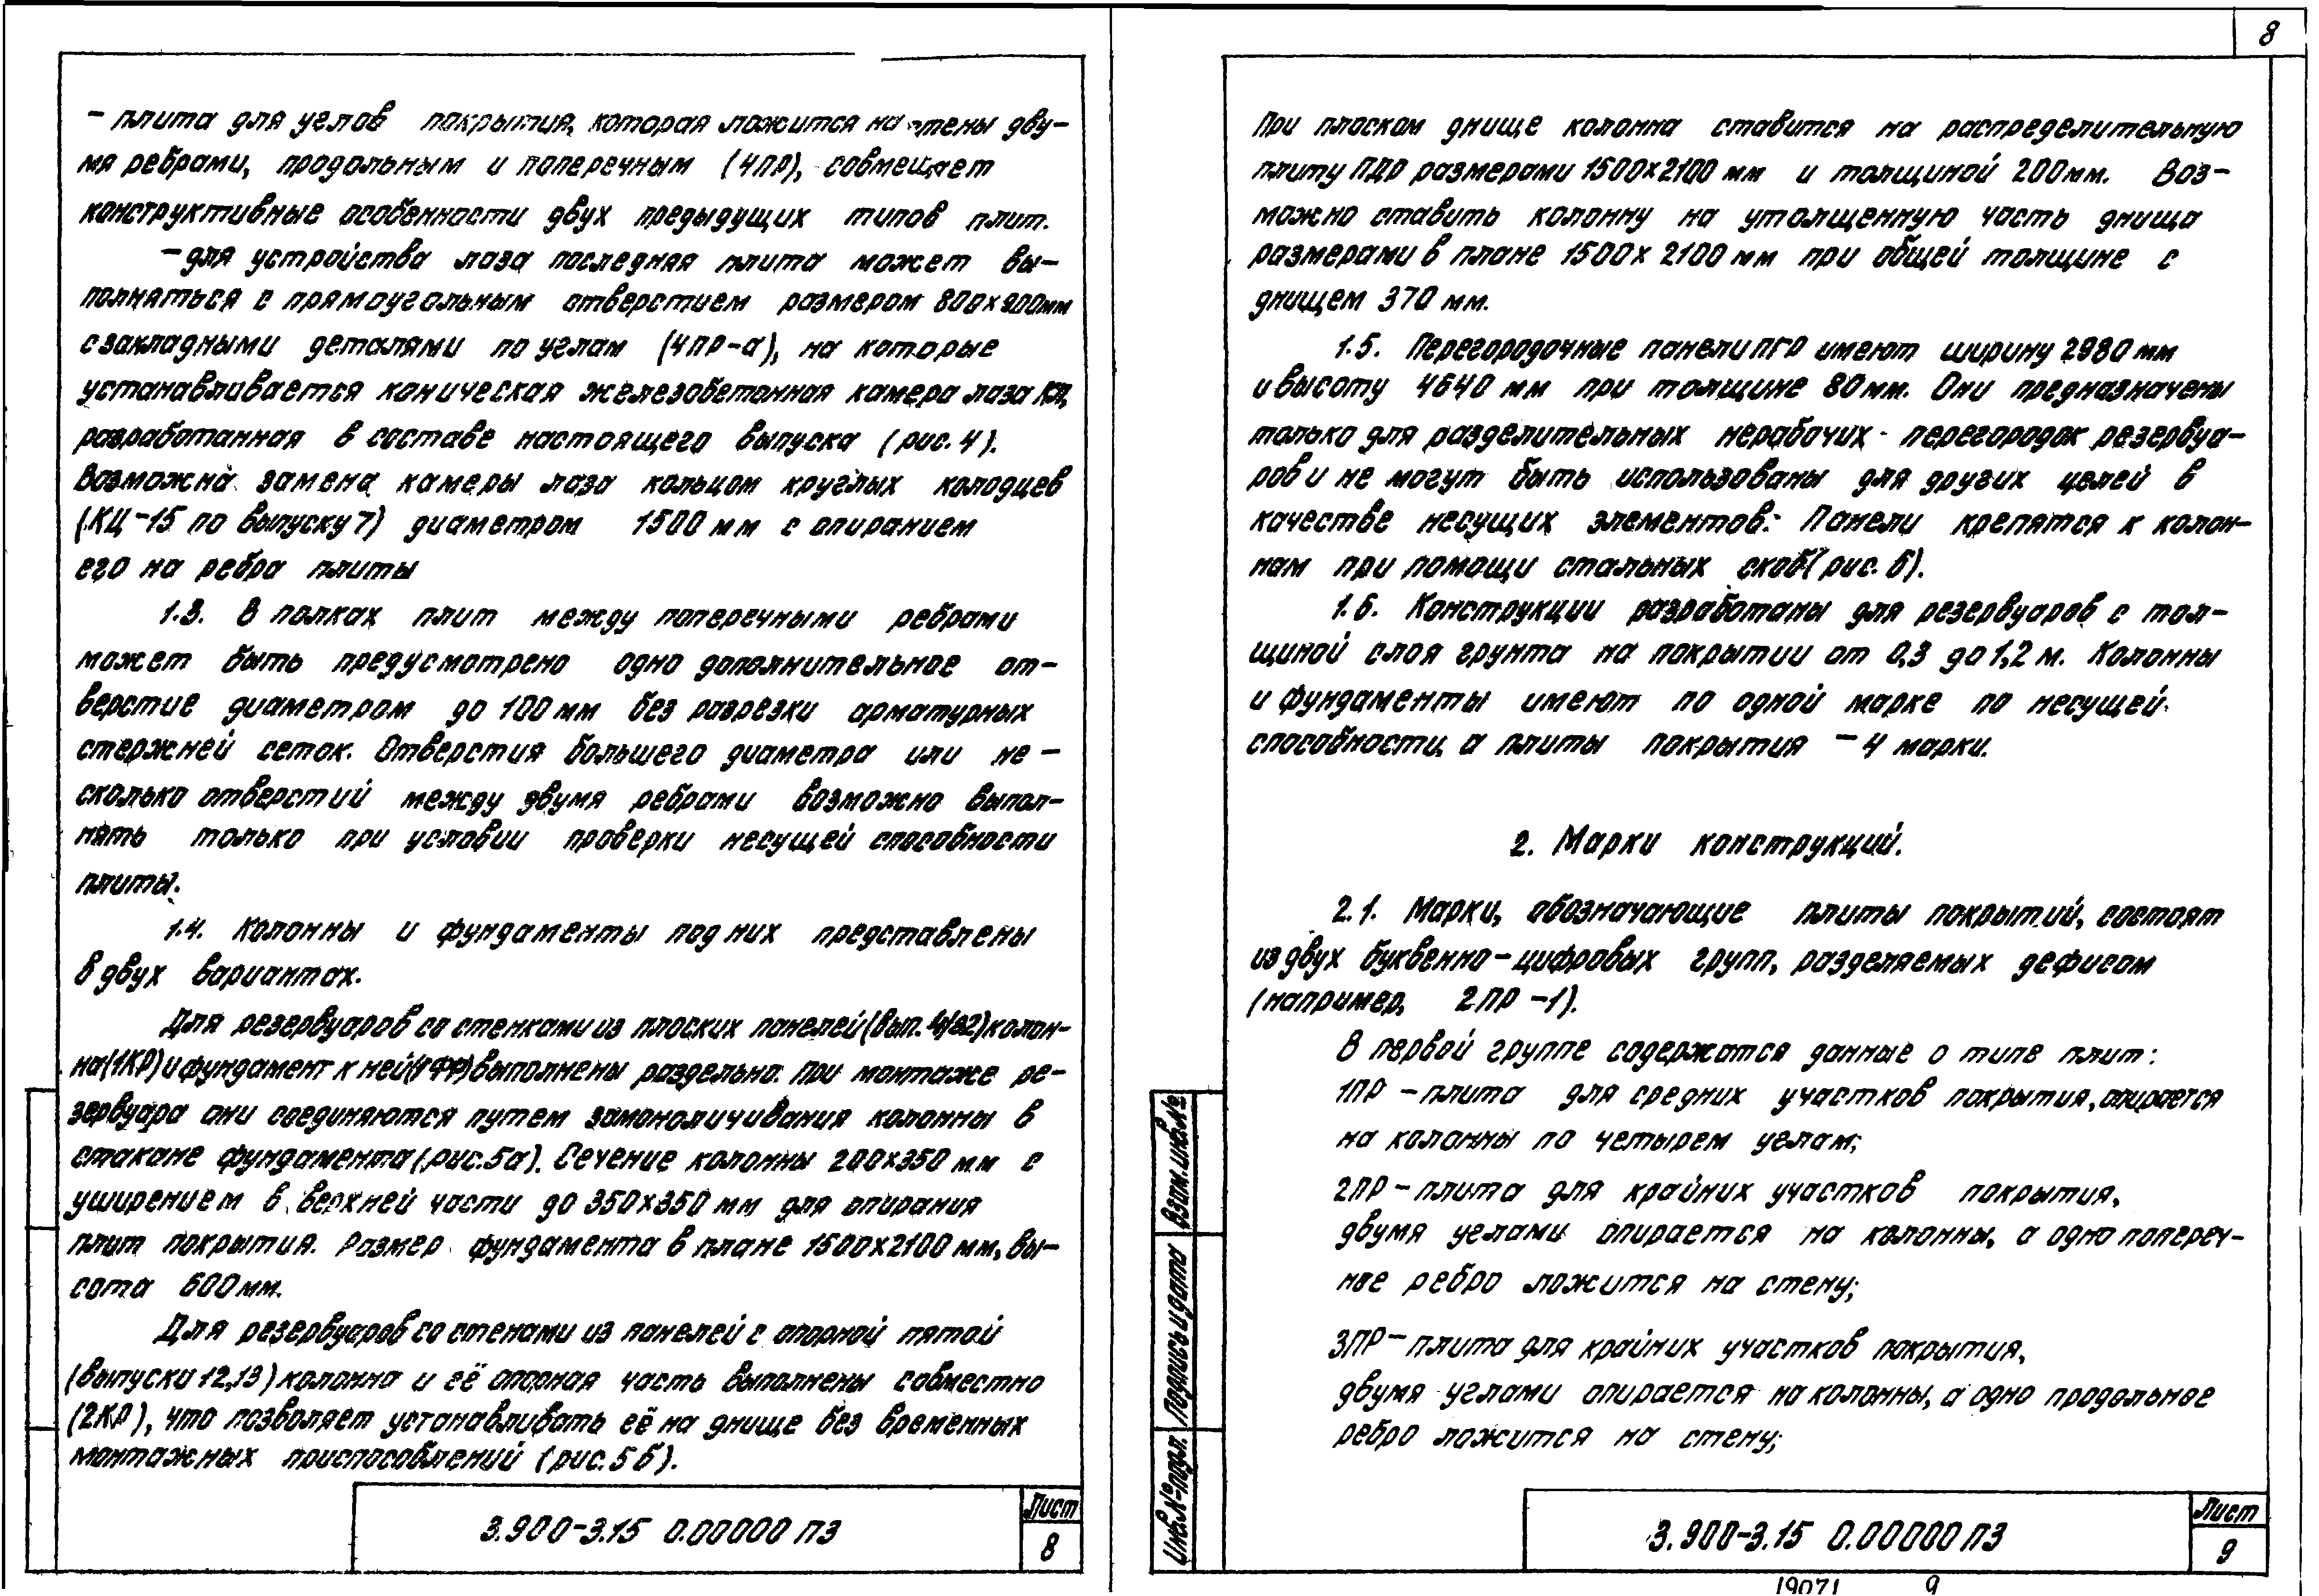 8
– плита для углов покрытия, которая ложится на стены дву–
мя ребрами, продольным и поперечным (4ПР), совмещает
конструктивные особенности двух предыдущих типов плит.
– для устройства лаза последняя плита может вы–
полняться с прямоугольным отверстием размером 800х900мм
с закладными деталями по углам (4ПР-а), на которые
устанавливается коническая железобетонная камера лаза КЛ,
разработанная в составе настоящего выпуска (рис. 4).
Возможна замена камеры лаза кольцом круглых колодцев
(КЦ-15 по выпуску 7) диаметром 1500 мм с опиранием
его на ребра плиты
1.3. В полках плит между поперечными ребрами
может быть предусмотрено одно дополнительное от–
верстие диаметром до 100 мм без разрезки арматурных
стержней сеток. Отверстия большего диаметра или не –
сколько отверстий между двумя ребрами возможно выпол–
нять только при условии проверки несущей способности
плиты.
1.4. Колонны и фундаменты под них представлены
в двух вариантах.
Для резервуаров со стенками из плоских панелей (вып. 4/82) колон–
на (1КР) и фундамент к ней (1ФР) выполнены раздельно. При монтаже ре–
зервуара они соединяются путем замоноличивания колонны в
стакане фундамента (рис.5а). Сечение колонны 200х350 мм с
уширением в верхней части до 350х350 мм для опирания
плит покрытия. Размер фундамента в плане 1500х2100 мм, вы–
сота 600мм.
Для резервуаров со стенами из панелей с опорной пятой
(выпуски 12,13) колонна и её опорная часть выполнены совместно
(2КР), что позволяет устанавливать её на днище без временных
монтажных приспособлений (рис.5б).
3.900-3.15 0.00000 ПЗ
Лист
8
При плоском днище колонна ставится на распределительную
плиту ПДР размерами 1500х2100 мм и толщиной 200мм. Воз–
можно ставить колонну на утолщенную часть днища
размерами в плане 1500х 2100 мм при общей толщине с
днищем 370 мм.
1.5. Перегородочные панели ПГР имеют ширину 2980 мм
и высоту 4640 мм при толщине 80 мм. Они предназначены
только для разделительных нерабочих перегородок резервуа–
ров и не могут быть использованы для других целей в
качестве несущих элементов. Панели крепятся к колон–
нам при помощи стальных скоб (рис. 6).
1.6. Конструкции разработаны для резервуаров с тол–
щиной слоя грунта на покрытии от 0,3 до 1,2 м. Колонны
и фундаменты имеют по одной марке по несущей
способности, а плиты покрытия – 4 марки.
2. Марки конструкций.
2.1. Марки, обозначающие плиты покрытий, состоят
из двух буквенно-цифровых групп, разделяемых дефисом
(например, 2ПР –1).
В первой группе содержатся данные о типе плит:
1ПР – плита для средних участков покрытия, опирается
на колонны по четырем углам;
2ПР – плита для крайних участков покрытия,
двумя углами опирается на колонны, а одно попереч–
ное ребро ложится на стену;
3ПР – плита для крайних участков покрытия,
двумя углами опирается на колонны, а одно продольное
ребро ложится на стену;
Взам. инв. №
Подпись и дата
Инв. № подл.
3.900-3.15 0.00000 ПЗ
Лист
9
19071 9